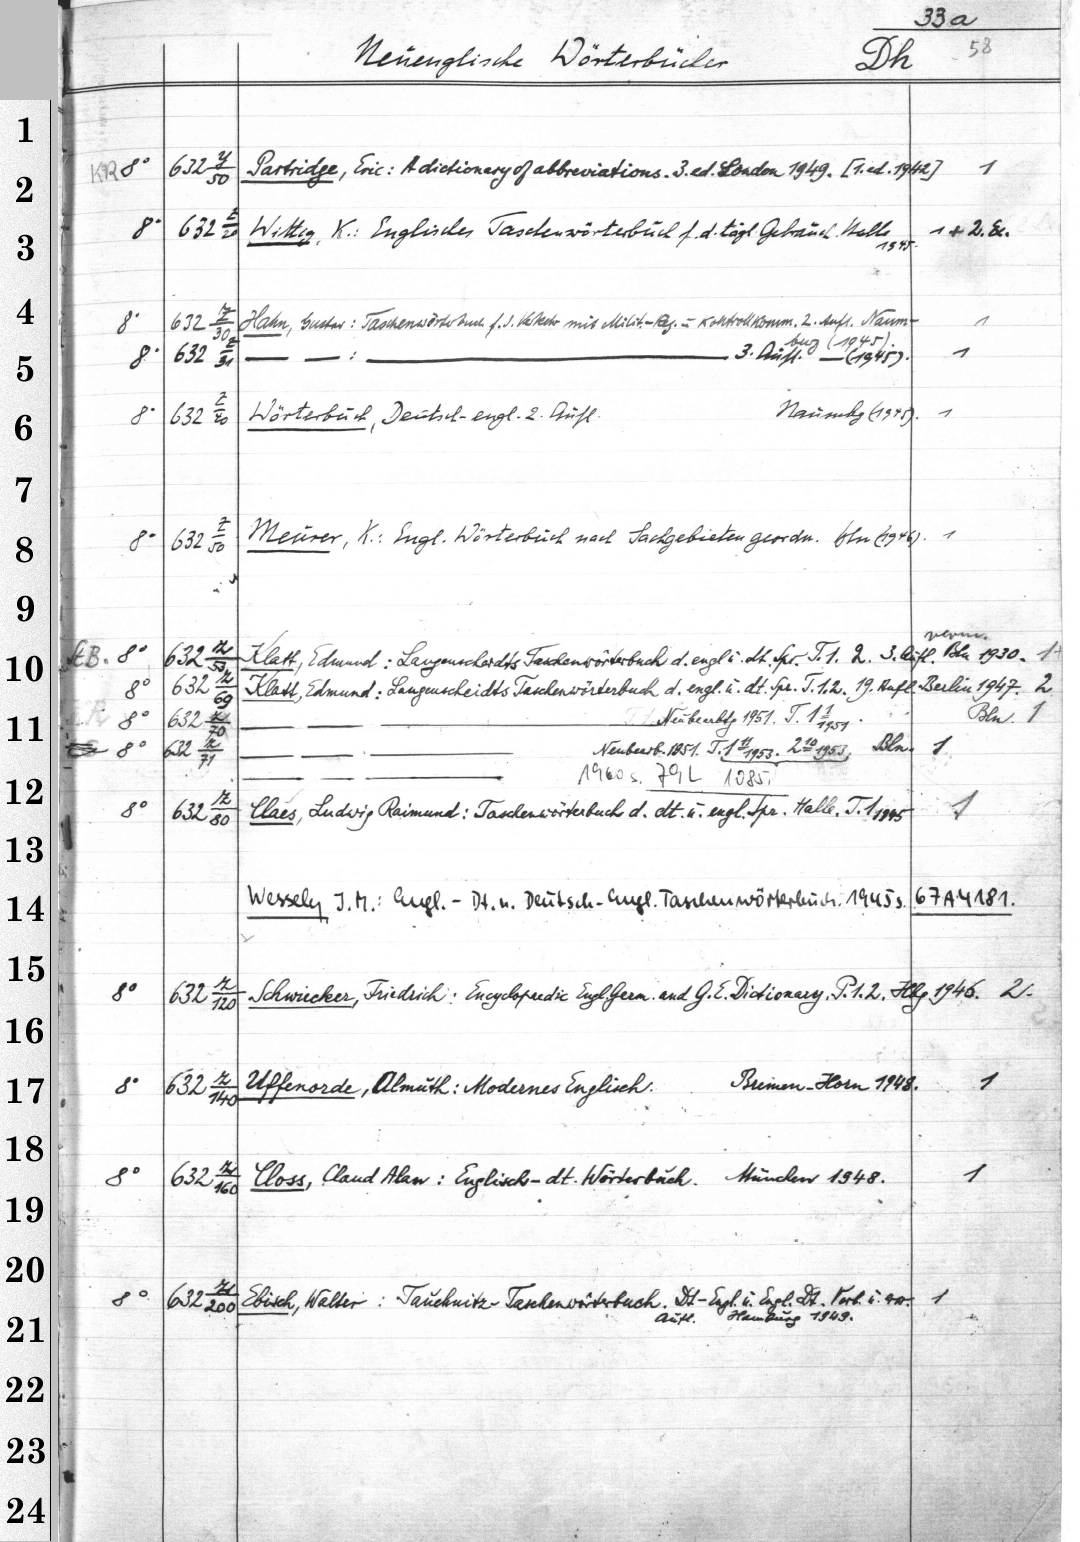 33a
Neuenglische Wörterbücher Dh 58
1
KR 8° 632 y/50 Partridge, Eric: A dictionary of abbreviations. 3. ed. London 1949. [1. ed. 1942] 1
2
8° 632 z/20 Wittig, K.: Englisches Taschenwörterbuch f. d. tägl. Gebrauch. Halle 1 + 2. Ex.
3
1945.
4
8° 632 z/30 Hahn, Gustav: Taschenwörterbuch f. d. Verkehr mit Milit.-Reg. u. Kontrollkomm. 2. Aufl. Naum- 1
burg (1945).
8° 632 z/31 — — : — 3. Aufl. — (1945). 1
5
6
8° 632 z/40 Wörterbuch, Deutsch-engl. 2. Aufl. Naumbg (1945). 1
7
8
8° 632 z/50 Meurer, K.: Engl. Wörterbuch nach Sachgebieten geordn. Bln (1946). 1
9
verm.
10
StB. 8° 632 z/53 Klatt, Edmund: Langenscheidts Taschenwörterbuch d. engl. u. dt. Spr. T. 1. 2. 3. Aufl. Bln 1930. 1
8° 632 z/69 Klatt, Edmund: Langenscheidts Taschenwörterbuch d. engl. u. dt. Spr. T. 1. 2. 19. Aufl. Berlin 1947. 2
11
8° 632 z/70 — — — Neubearbtg 1951. T. 1 1951. Bln. 1
8° 632 z/71 — — — Neubearb. 1951. T. 1 1953. 2 1953. Bln. 1
— — — 1960s. 79L 1085.
12
8° 632 z/80 Claes, Ludwig Raimund: Taschenwörterbuch d. dt. u. engl. Spr. Halle. T. 1 1945 1
13
14
Wessely J. M.: Engl. - Dt. u. Deutsch-Engl. Taschenwörterbuch. 1945s. 67A4181.
15
8° 632 z/120 Schwiecker, Friedrich: Encyclopaedic Engl. Germ. and G. E. Dictionary. P. 1. 2. Hbg 1946. 2.
16
17
8° 632 z/140 Uffenorde, Almuth: Modernes Englisch. Bremen-Horn 1948. 1
18
8° 632 z/160 Closs, Claud Alan: Englisch-dt. Wörterbuch. München 1948. 1
19
20
8° 632 z/200 Ebisch, Walter: Tauchnitz-Taschenwörterbuch. Dt-Engl. u. Engl. Dt. Verb. u. erw. 1
Aufl. Hamburg 1949.
21
22
23
24